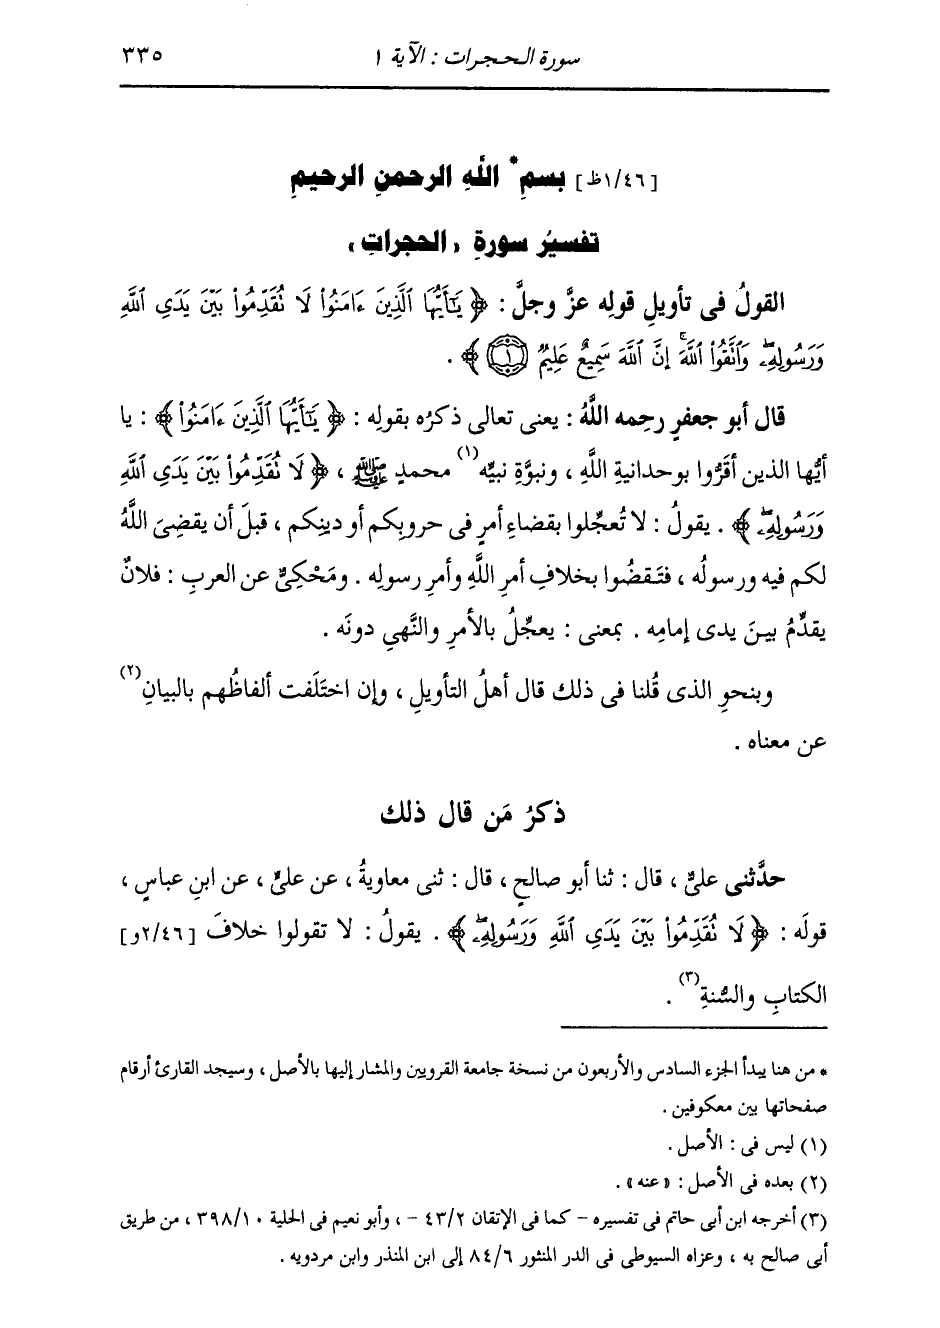 سورة الحجرات : الآية ١ ٣٣٥
[١/٤٦ظ] بسمِ* اللَّهِ الرحمنِ الرحيمِ
تفسيرُ سورةِ «الحجراتِ»
القولُ فى تأويلِ قولِه عزَّ وجلَّ : ﴿ يَٰٓأَيُّهَا ٱلَّذِينَ ءَامَنُوا۟ لَا تُقَدِّمُوا۟ بَيْنَ يَدَىِ ٱللَّهِ
وَرَسُولِهِۦۖ وَٱتَّقُوا۟ ٱللَّهَۚ إِنَّ ٱللَّهَ سَمِيعٌ عَلِيمٌ ١ ﴾ .
قال أبو جعفرٍ رحِمه اللَّهُ : يعنى تعالى ذكرُه بقولِه : ﴿ يَٰٓأَيُّهَا ٱلَّذِينَ ءَامَنُوا۟ ﴾ : يا
أيُّها الذين أقَرُّوا بوحدانيةِ اللَّهِ ، ونبوَّةِ نبيِّه(١) محمدٍ ﷺ ، ﴿ لَا تُقَدِّمُوا۟ بَيْنَ يَدَىِ ٱللَّهِ
وَرَسُولِهِۦۖ ﴾ . يقولُ : لا تُعجِّلوا بقضاءِ أمرٍ فى حروبِكم أو دينِكم ، قبلَ أن يقضِىَ اللَّهُ
لكم فيه ورسولُه ، فتَقضُوا بخلافِ أمرِ اللَّهِ وأمرِ رسولِه . ومَحْكِىٌّ عن العربِ : فلانٌ
يقدِّمُ بينَ يدى إمامِه . بمعنى : يعجِّلُ بالأمرِ والنَّهىِ دونَه .
وبنحوِ الذى قُلنا فى ذلك قال أهلُ التأويلِ ، وإن اختَلَفت ألفاظُهم بالبيانِ(٢)
عن معناه .
ذكرُ مَن قال ذلك
حدَّثنى علىٌّ ، قال : ثنا أبو صالحٍ ، قال : ثنى معاويةُ ، عن علىٍّ ، عن ابنِ عباسٍ ،
قولَه : ﴿ لَا تُقَدِّمُوا۟ بَيْنَ يَدَىِ ٱللَّهِ وَرَسُولِهِۦۖ ﴾ . يقولُ : لا تقولوا خلافَ [٢/٤٦و]
الكتابِ والسُّنةِ(٣) .
* من هنا يبدأ الجزء السادس والأربعون من نسخة جامعة القرويين والمشار إليها بالأصل ، وسيجد القارئ أرقام
صفحاتها بين معكوفين .
(١) ليس فى : الأصل .
(٢) بعده فى الأصل : «عنه» .
(٣) أخرجه ابن أبى حاتم فى تفسيره - كما فى الإتقان ٤٣/٢ - ، وأبو نعيم فى الحلية ٣٩٨/١٠ ، من طريق
أبى صالح به ، وعزاه السيوطى فى الدر المنثور ٨٤/٦ إلى ابن المنذر وابن مردويه .